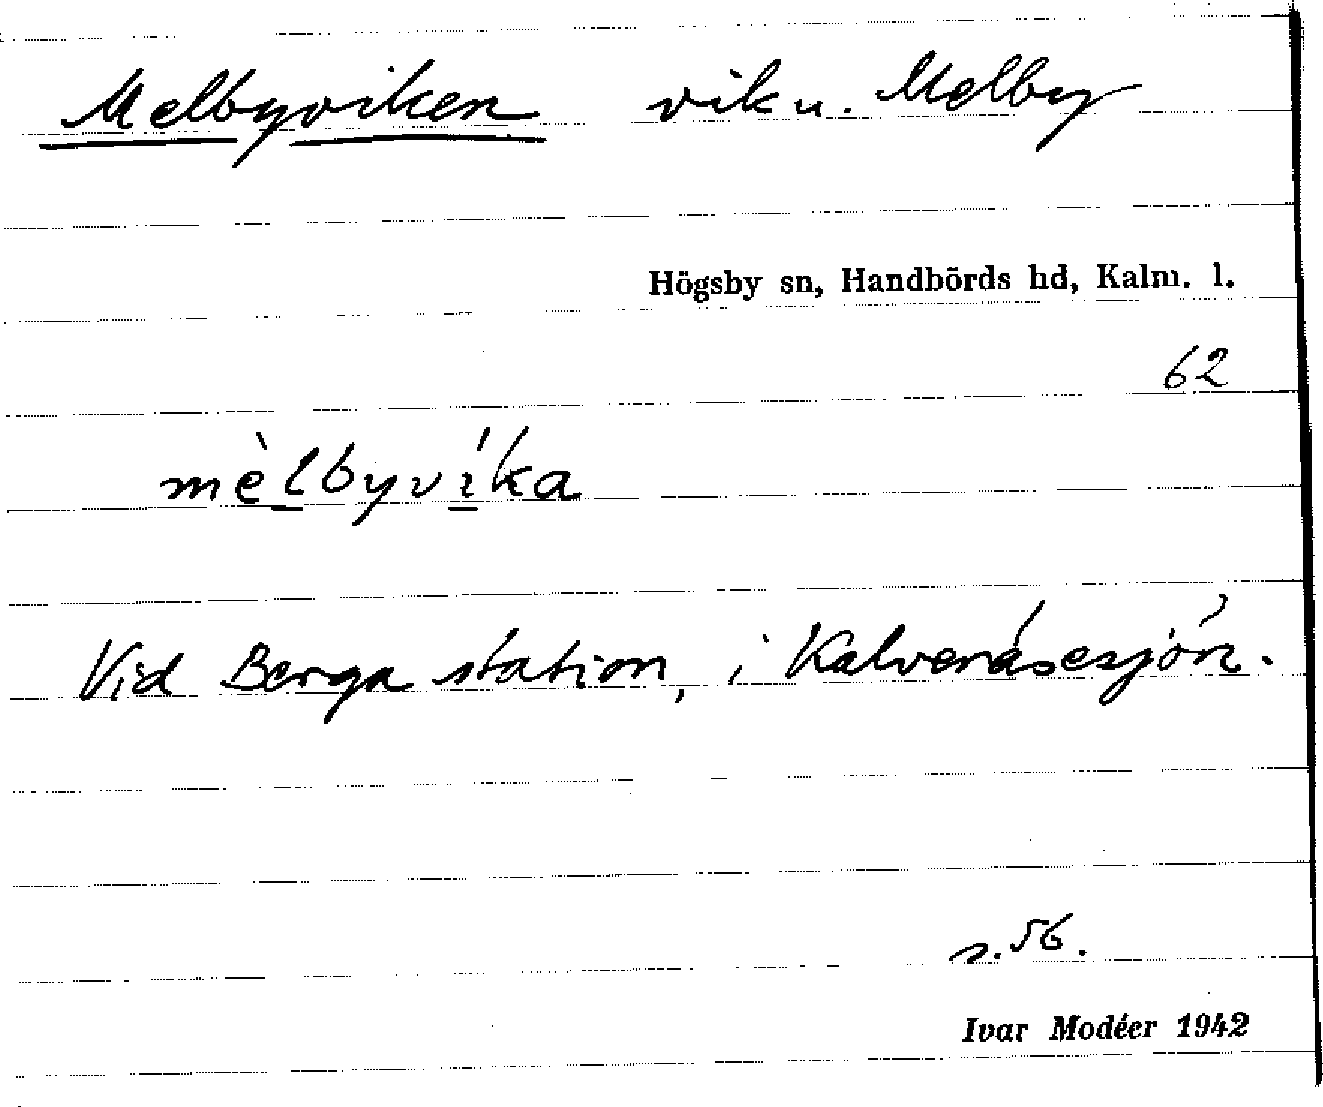 Melbyviken vik u. Melby
Högsby sn, Handbörds hd, Kalm. l.
62
mèlbyvíka
Vid Berga station, i Kalvenäsesjön.
s. 56.
Ivar Modéer 1942